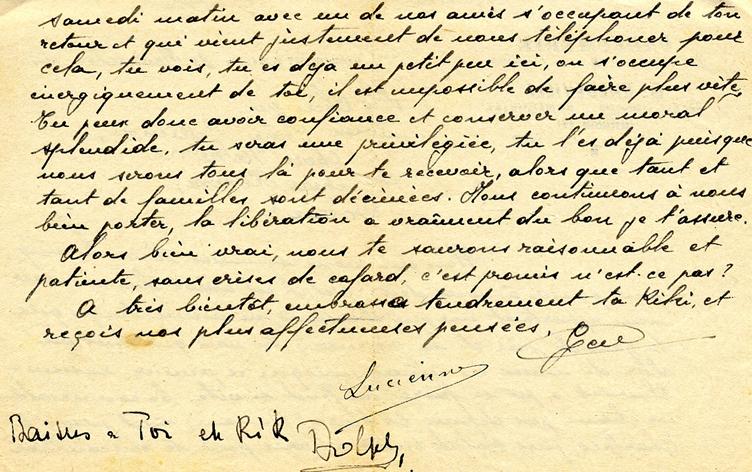 samedi matin avec un de nos amis s'occupant de ton
retour et qui vient justement de nous téléphoner pour
cela, tu vois, tu es déja un petit peu ici, on s'occupe
énergiquement de toi, il est impossible de faire plus vite.
Tu peux donc avoir confiance et conserver un moral
splendide, tu seras une privilégiée, tu l'es déjà puisque
nous serons tous là pour te recevoir, alors que tant et
tant de familles sont décimées. Nous continuons à nous
bien porter, la libération a vraîment du bon je t'assure.
Alors bien vrai, nous te saurons raisonnable et
patiente, sans crises de cafard, c'est promis n'est-ce pas?
A très bientôt, embrasse tendrement ta Kiki, et
reçois nos plus affectueuses pensées.
Lucienne
Baisers a Toi et KiK